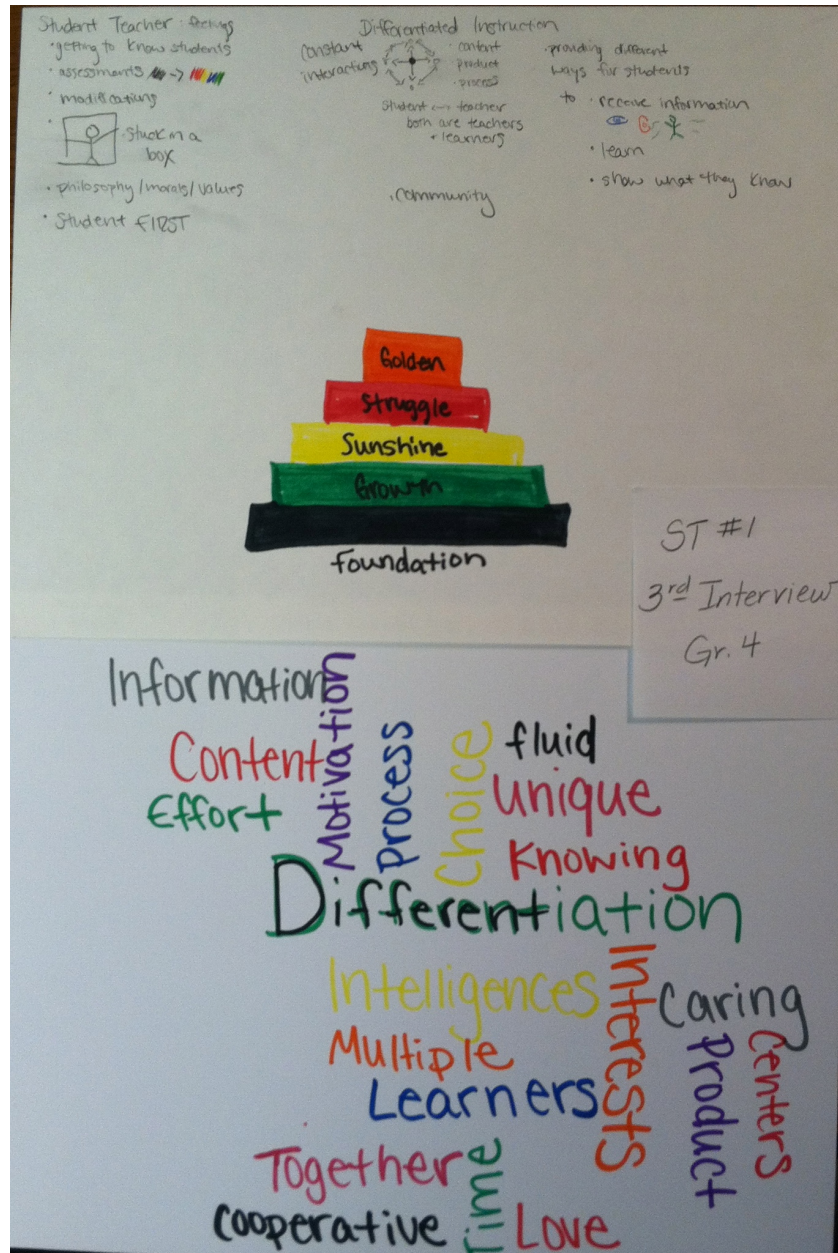 Student Teacher: feelings
• getting to know students
• assessments ->
• modifications
• stuck in a
box
• philosophy/morals/values
• Student FIRST
Differentiated Instruction
constant
interacting
• content
product
• process
Student <-> teacher
both are teachers
+ learners
• community
• providing different
ways for students
to • receive information
• learn
• show what they know
Golden
Struggle
Sunshine
Growth
foundation
ST #1
3rd Interview
Gr. 4
Information
Motivation
Content
Effort
Process
Choice
fluid
Unique
Knowing
Differentiation
Intelligences
Interests
Caring
Multiple
Learners
Product
Centers
Together
Time
Cooperative
Love